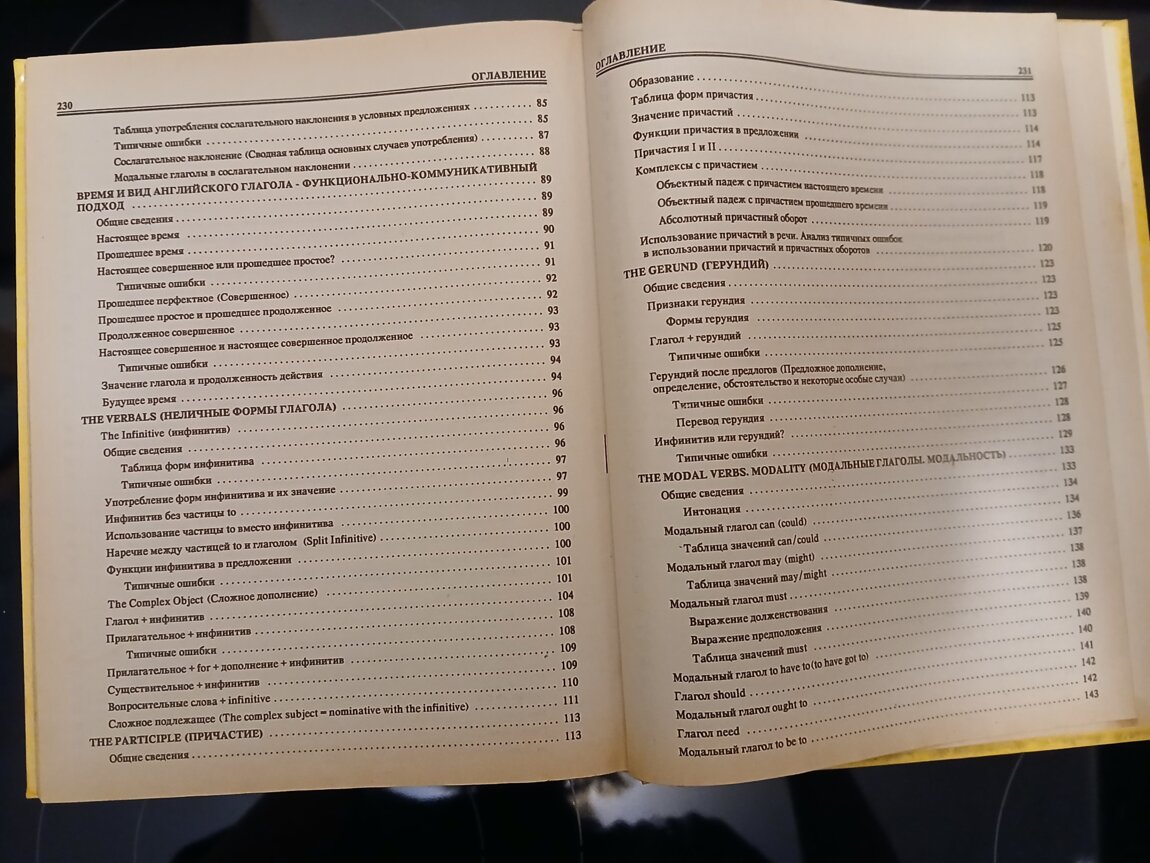 230 ОГЛАВЛЕНИЕ
Таблица употребления сослагательного наклонения в условных предложениях .......... 85
Типичные ошибки .......... 85
Сослагательное наклонение (Сводная таблица основных случаев употребления) .......... 87
Модальные глаголы в сослагательном наклонении .......... 88
ВРЕМЯ И ВИД АНГЛИЙСКОГО ГЛАГОЛА - ФУНКЦИОНАЛЬНО-КОММУНИКАТИВНЫЙ
ПОДХОД .......... 89
Общие сведения .......... 89
Настоящее время .......... 89
Прошедшее время .......... 90
Настоящее совершенное или прошедшее простое? .......... 91
Типичные ошибки .......... 91
Прошедшее перфектное (Совершенное) .......... 92
Прошедшее простое и прошедшее продолженное .......... 92
Продолженное совершенное .......... 93
Настоящее совершенное и настоящее совершенное продолженное .......... 93
Типичные ошибки .......... 93
Значение глагола и продолженность действия .......... 94
Будущее время .......... 94
THE VERBALS (НЕЛИЧНЫЕ ФОРМЫ ГЛАГОЛА) .......... 96
The Infinitive (инфинитив) .......... 96
Общие сведения .......... 96
Таблица форм инфинитива .......... 96
Типичные ошибки .......... 97
Употребление форм инфинитива и их значение .......... 97
Инфинитив без частицы to .......... 99
Использование частицы to вместо инфинитива .......... 100
Наречие между частицей to и глаголом (Split Infinitive) .......... 100
Функции инфинитива в предложении .......... 100
Типичные ошибки .......... 101
The Complex Object (Сложное дополнение) .......... 101
Глагол + инфинитив .......... 104
Прилагательное + инфинитив .......... 108
Типичные ошибки .......... 108
Прилагательное + for + дополнение + инфинитив .......... 109
Существительное + инфинитив .......... 109
Вопросительные слова + infinitive .......... 110
Сложное подлежащее (The complex subject = nominative with the infinitive) .......... 111
THE PARTICIPLE (ПРИЧАСТИЕ) .......... 113
Общие сведения .......... 113
ОГЛАВЛЕНИЕ 231
Образование .......... 113
Таблица форм причастия .......... 113
Значение причастий .......... 114
Функции причастия в предложении .......... 114
Причастия I и II .......... 117
Комплексы с причастием .......... 118
Объектный падеж с причастием настоящего времени .......... 118
Объектный падеж с причастием прошедшего времени .......... 119
Абсолютный причастный оборот .......... 119
Использование причастий в речи. Анализ типичных ошибок
в использовании причастий и причастных оборотов .......... 120
THE GERUND (ГЕРУНДИЙ) .......... 123
Общие сведения .......... 123
Признаки герундия .......... 123
Формы герундия .......... 123
Глагол + герундий .......... 125
Типичные ошибки .......... 125
Герундий после предлогов (Предложное дополнение,
определение, обстоятельство и некоторые особые случаи) .......... 126
Типичные ошибки .......... 127
Перевод герундия .......... 128
Инфинитив или герундий? .......... 128
Типичные ошибки .......... 129
THE MODAL VERBS. MODALITY (МОДАЛЬНЫЕ ГЛАГОЛЫ. МОДАЛЬНОСТЬ) .......... 133
Общие сведения .......... 133
Интонация .......... 134
Модальный глагол can (could) .......... 134
Таблица значений can/could .......... 136
Модальный глагол may (might) .......... 137
Таблица значений may/might .......... 138
Модальный глагол must .......... 138
Выражение долженствования .......... 138
Выражение предположения .......... 139
Таблица значений must .......... 140
Модальный глагол to have to (to have got to) .......... 140
Глагол should .......... 141
Модальный глагол ought to .......... 142
Глагол need .......... 142
Модальный глагол to be to .......... 143